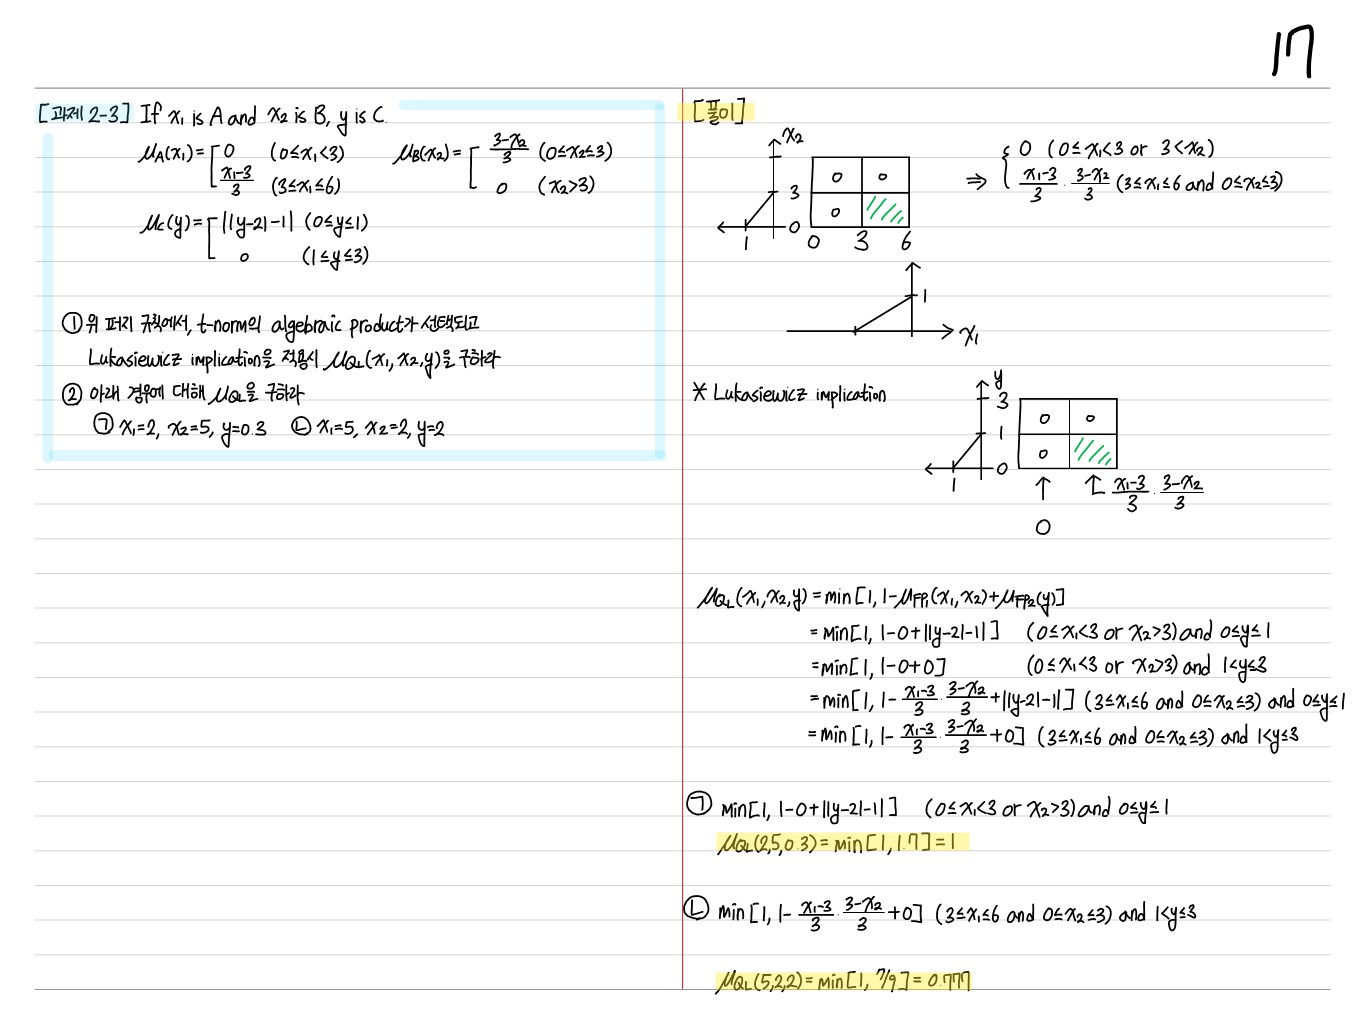 17
[과제 2-3] If x₁ is A and x₂ is B, y is C.
μA(x₁) = [ 0 (0≤x₁<3)
(x₁-3)/3 (3≤x₁≤6)
μB(x₂) = [ (3-x₂)/3 (0≤x₂≤3)
0 (x₂>3)
μc(y) = [ ||y-2|-1| (0≤y≤1)
0 (1≤y≤3)
① 위 퍼지 규칙에서, t-norm의 algebraic product가 선택되고
Lukasiewicz implication을 적용시 μQL(x₁, x₂, y)를 구하라
② 아래 경우에 대해 μQL을 구하라
㉠ x₁=2, x₂=5, y=0.3 ㉡ x₁=5, x₂=2, y=2
[풀이]
x₂
3
0
1
0 0
0
0 3 6
⇒ { 0 (0≤x₁<3 or 3<x₂)
(x₁-3)/3 · (3-x₂)/3 (3≤x₁≤6 and 0≤x₂≤3)
1
x₁
* Lukasiewicz implication
y
3
1
0
1
0 0
0
↑ ↑ (x₁-3)/3 · (3-x₂)/3
0
μQL(x₁, x₂, y) = min[1, 1-μFP₁(x₁, x₂)+μFP₂(y)]
= min[1, 1-0+||y-2|-1|] (0≤x₁<3 or x₂>3) and 0≤y≤1
= min[1, 1-0+0] (0≤x₁<3 or x₂>3) and 1<y≤3
= min[1, 1-(x₁-3)/3 · (3-x₂)/3+||y-2|-1|] (3≤x₁≤6 and 0≤x₂≤3) and 0≤y≤1
= min[1, 1-(x₁-3)/3 · (3-x₂)/3+0] (3≤x₁≤6 and 0≤x₂≤3) and 1<y≤3
㉠ min[1, 1-0+||y-2|-1|] (0≤x₁<3 or x₂>3) and 0≤y≤1
μQL(2,5,0.3) = min[1, 1.7] = 1
㉡ min[1, 1-(x₁-3)/3 · (3-x₂)/3+0] (3≤x₁≤6 and 0≤x₂≤3) and 1<y≤3
μQL(5,2,2) = min[1, 7/9] = 0.777